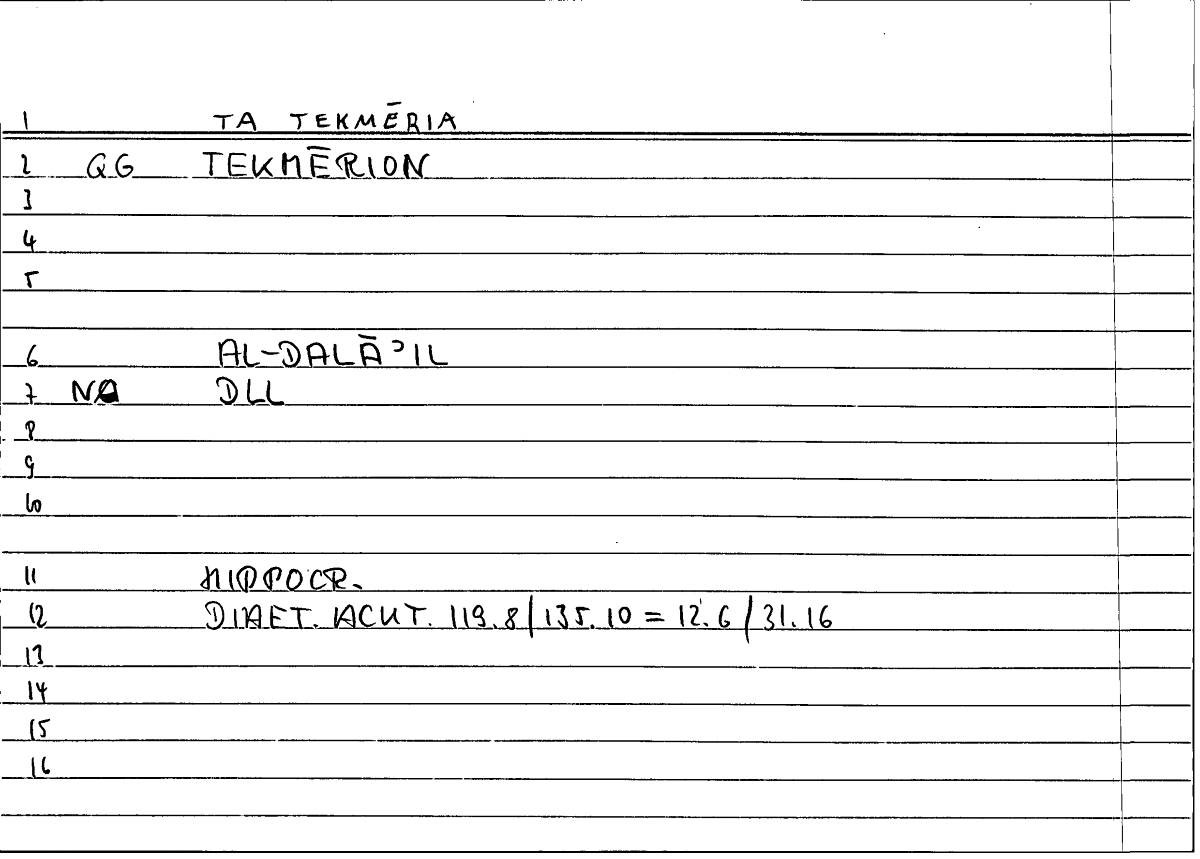 1 TA TEKMĒRIA
2 QG TEKMĒRION
3
4
5
6 AL-DALĀʾIL
7 DLL
8
9
10
11 HIPPOCR.
12 DIAET. ACUT. 119.8/135.10 = 12.6/31.16
13
14
15
16